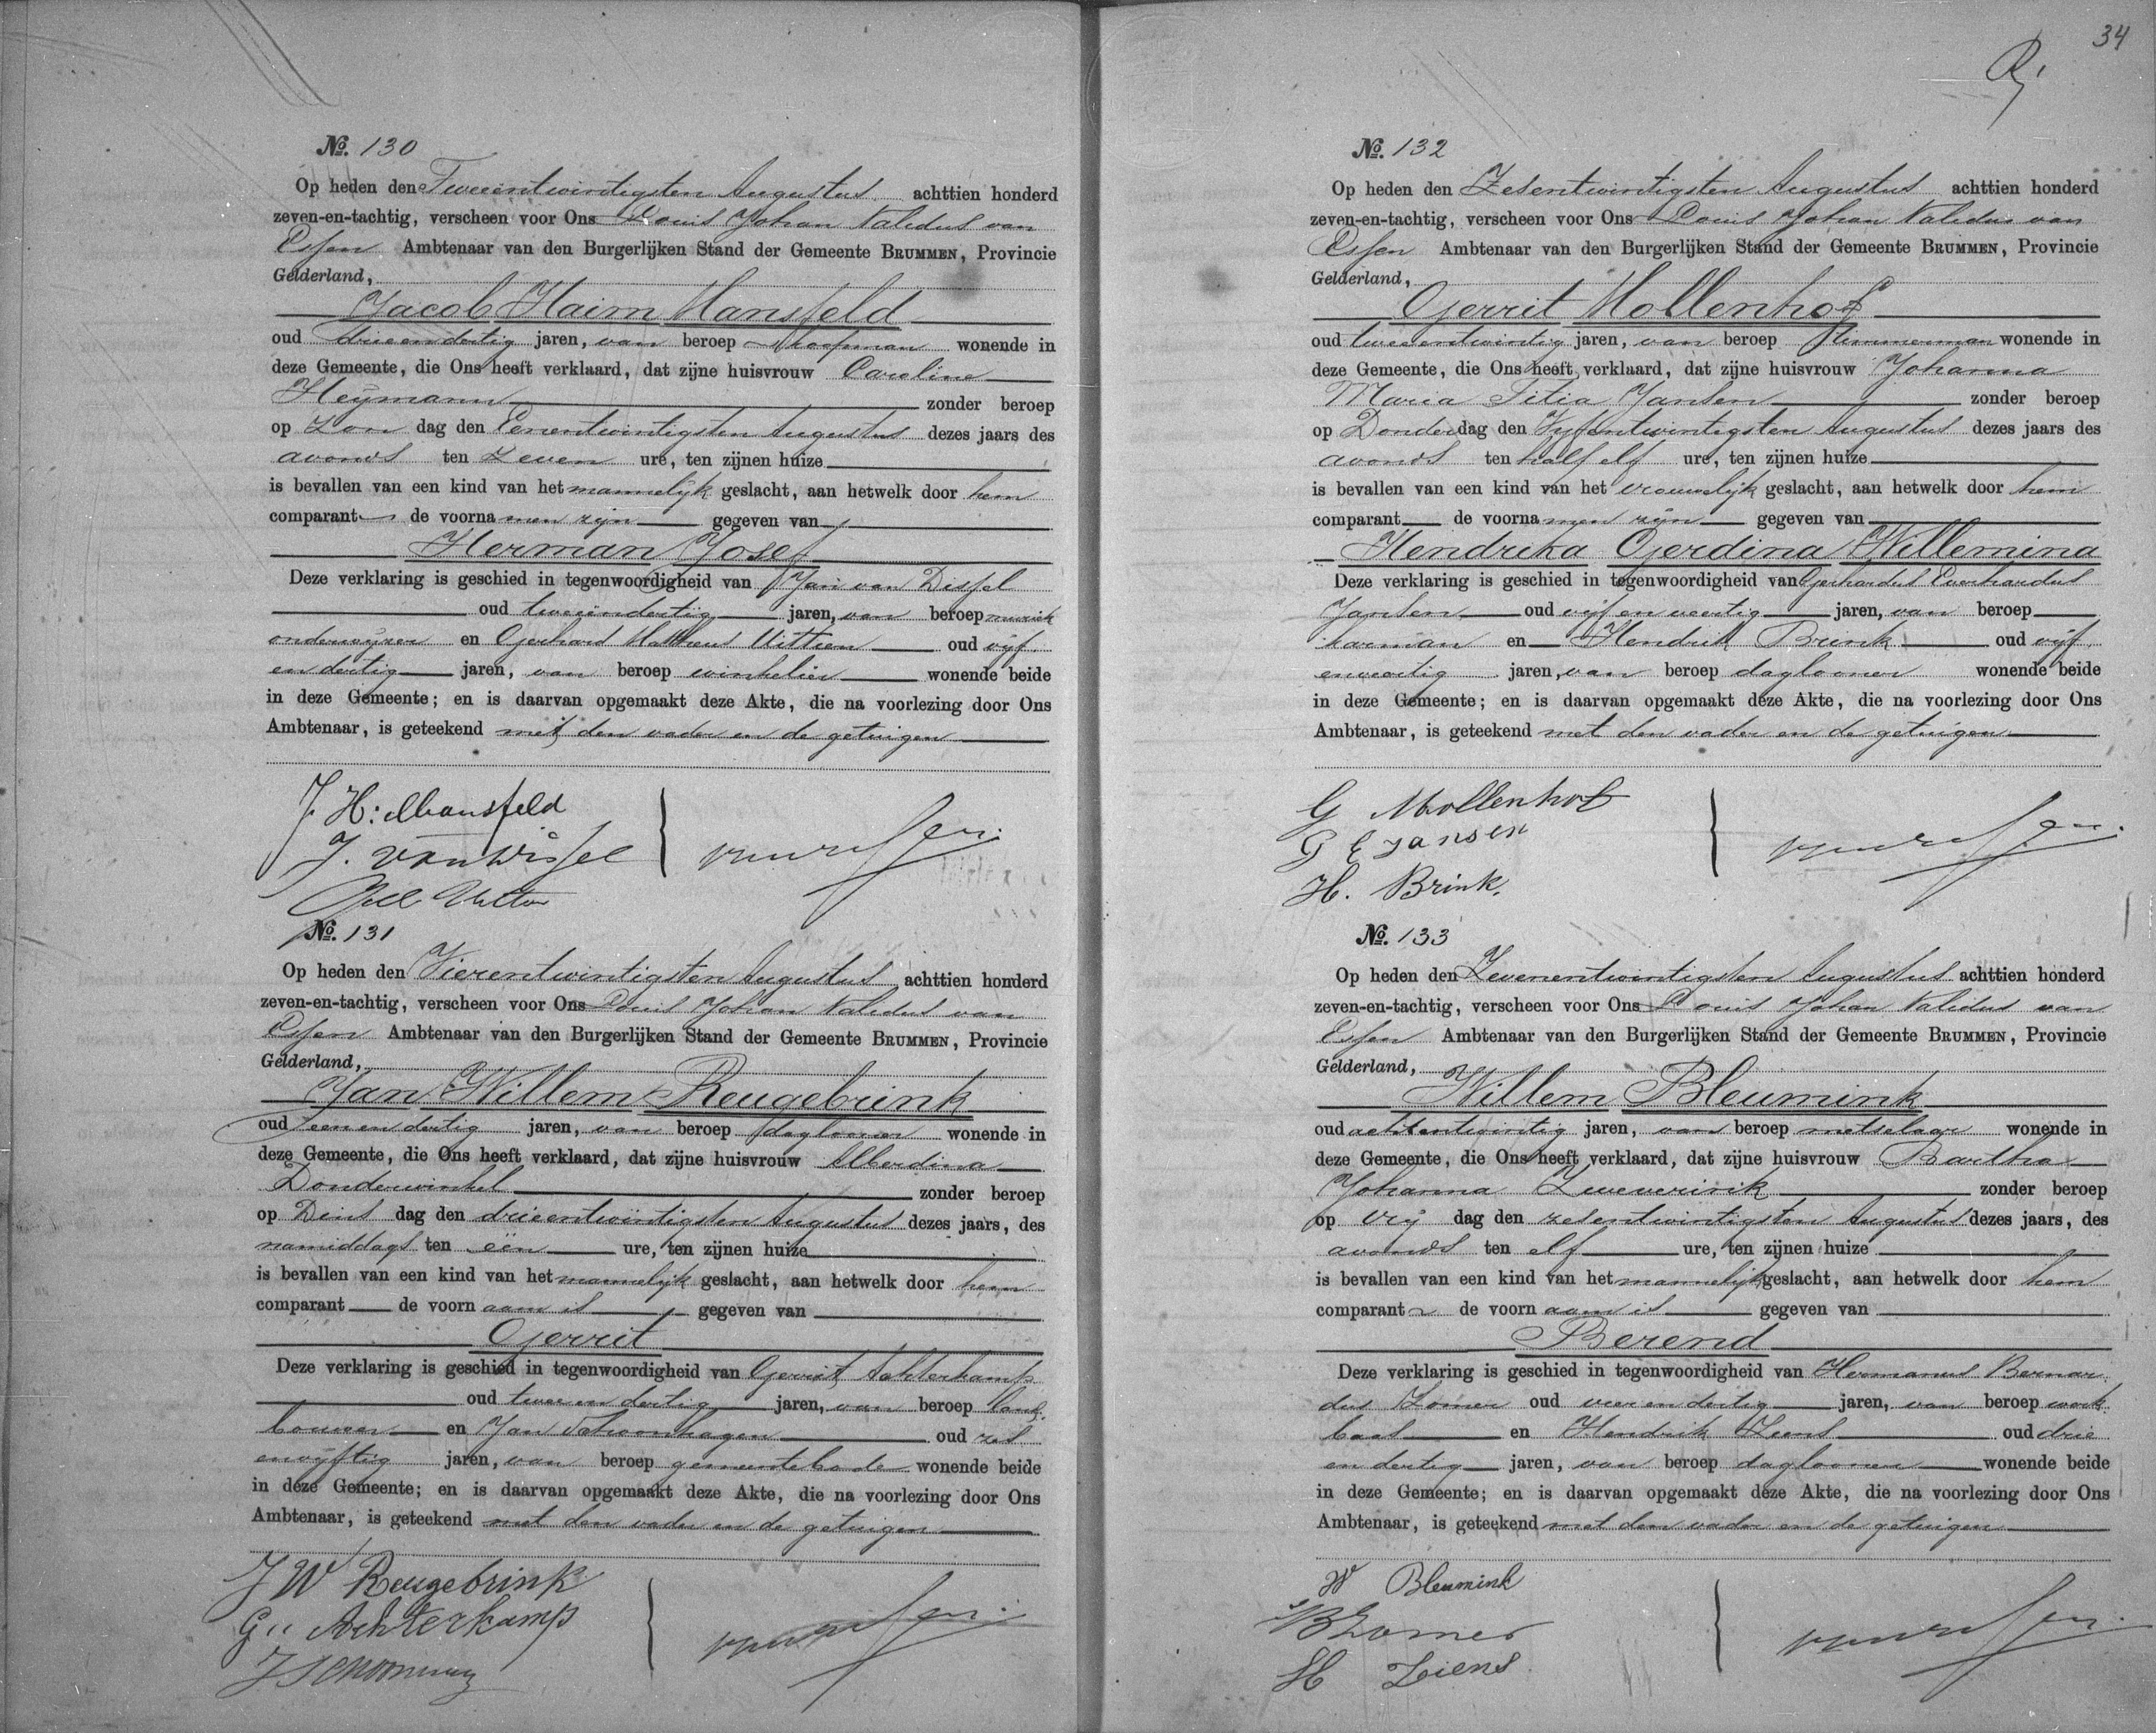 No. 130
Op heden den Tweeentwintigsten Augustus achttien honderd
zeven-en-tachtig, verscheen voor Ons Louis Johan Validus van
Essen Ambtenaar van den Burgerlijken Stand der Gemeente BRUMMEN, Provincie
Gelderland,
Jacob Haim Mansfeld
oud drieendertig jaren, van beroep Koopman wonende in
deze Gemeente, die Ons heeft verklaard, dat zijne huisvrouw Caroline
Heymann zonder beroep
op Zon dag den Eenentwintigsten Augustus dezes jaars des
avonds ten Zeven ure, ten zijnen huize
is bevallen van een kind van het mannelijk geslacht, aan hetwelk door hem
comparant de voornamen zijn gegeven van
Herman Josef
Deze verklaring is geschied in tegenwoordigheid van Jan van
oud tweeendertig jaren, van beroep muziek
onderwijzer en Gerhard Mattheus oud vijf
en dertig jaren, van beroep winkelier wonende beide
in deze Gemeente; en is daarvan opgemaakt deze Akte, die na voorlezing door Ons
Ambtenaar, is geteekend met den vader en de getuigen
J. H: Mansfeld
J. van Wissel
No. 131
Op heden den Vierentwintigsten Augustus achttien honderd
zeven-en-tachtig, verscheen voor Ons Louis Johan Validus van
Essen Ambtenaar van den Burgerlijken Stand der Gemeente BRUMMEN, Provincie
Gelderland,
Jan Willem Reugebrink
oud eenendertig jaren, van beroep daglooner wonende in
deze Gemeente, die Ons heeft verklaard, dat zijne huisvrouw Alberdina
Donderwinkel zonder beroep
op Dins dag den drieentwintigsten Augustus dezes jaars, des
namiddags ten één ure, ten zijnen huize
is bevallen van een kind van het mannelijk geslacht, aan hetwelk door hem
comparant de voornaam is gegeven van
Gerrit
Deze verklaring is geschied in tegenwoordigheid van Gerrit Achterkamp
oud tweeendertig jaren, van beroep land
bouwer en Jan Schoonhagen oud zes
envijftig jaren, van beroep gemeentebode wonende beide
in deze Gemeente; en is daarvan opgemaakt deze Akte, die na voorlezing door Ons
Ambtenaar, is geteekend met den vader en de getuigen
J W Reugebrink
G.. Achterkamp
34
No. 132
Op heden den Zesentwintigsten Augustus achttien honderd
zeven-en-tachtig, verscheen voor Ons Louis Johan Validus van
Essen Ambtenaar van den Burgerlijken Stand der Gemeente BRUMMEN, Provincie
Gelderland,
Gerrit Mollenhof
oud tweeentwintig jaren, van beroep timmerman wonende in
deze Gemeente, die Ons heeft verklaard, dat zijne huisvrouw Johanna
Maria Titia Jansen zonder beroep
op Donderdag den Vijfentwintigsten Augustus dezes jaars des
avonds ten half elf ure, ten zijnen huize
is bevallen van een kind van het vrouwelijk geslacht, aan hetwelk door hem
comparant de voornamen zijn gegeven van
Hendrika Gerdina Willemina
Deze verklaring is geschied in tegenwoordigheid van Gerhardus Everhardus
Jansen oud vijf en veertig jaren, van beroep
karman en Hendrik Brink oud vijf
enveertig jaren, van beroep daglooner wonende beide
in deze Gemeente; en is daarvan opgemaakt deze Akte, die na voorlezing door Ons
Ambtenaar, is geteekend met den vader en de getuigen
G Mollenhof
G E Jansen
H. Brink.
No. 133
Op heden den Zevenentwintigsten Augustus achttien honderd
zeven-en-tachtig, verscheen voor Ons Louis Johan Validus van
Essen Ambtenaar van den Burgerlijken Stand der Gemeente BRUMMEN, Provincie
Gelderland,
Willem Bleumink
oud achtentwintig jaren, van beroep metselaar wonende in
deze Gemeente, die Ons heeft verklaard, dat zijne huisvrouw Bartha
Johanna Zweverink zonder beroep
op Vrij dag den zesentwintigsten Augustus dezes jaars, des
avonds ten elf ure, ten zijnen huize
is bevallen van een kind van het mannelijk geslacht, aan hetwelk door hem
comparant de voornaam is gegeven van
Berend
Deze verklaring is geschied in tegenwoordigheid van Hermanus Bernar
dus Lomer oud vierendertig jaren, van beroep werk
baas en Hendrik Ziens oud drie
en dertig jaren, van beroep daglooner wonende beide
in deze Gemeente; en is daarvan opgemaakt deze Akte, die na voorlezing door Ons
Ambtenaar, is geteekend met den vader en de getuigen
W Bleumink
HB Lomer
H Ziens